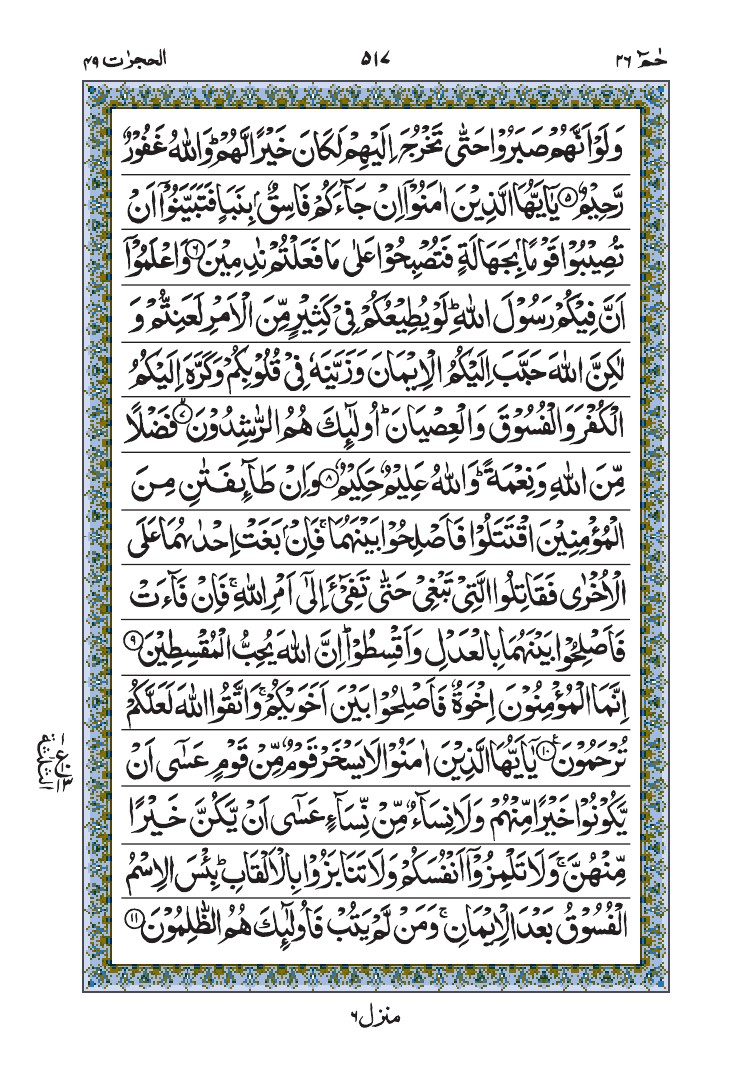 حٰمٓ ٢٦
٥١٧
الحجرٰت ٤٩
وَلَوْ اَنَّهُمْ صَبَرُوْا حَتّٰى تَخْرُجَ اِلَيْهِمْ لَكَانَ خَيْرًا لَّهُمْ ؕ وَاللّٰهُ غَفُوْرٌ
رَّحِيْمٌ ۝٥ يٰۤاَيُّهَا الَّذِيْنَ اٰمَنُوْۤا اِنْ جَآءَكُمْ فَاسِقٌۢ بِنَبَاٍ فَتَبَيَّنُوْۤا اَنْ
تُصِيْبُوْا قَوْمًۢا بِجَهَالَةٍ فَتُصْبِحُوْا عَلٰى مَا فَعَلْتُمْ نٰدِمِيْنَ ۝٦ وَاعْلَمُوْۤا
اَنَّ فِيْكُمْ رَسُوْلَ اللّٰهِ ؕ لَوْ يُطِيْعُكُمْ فِيْ كَثِيْرٍ مِّنَ الْاَمْرِ لَعَنِتُّمْ وَ
لٰكِنَّ اللّٰهَ حَبَّبَ اِلَيْكُمُ الْاِيْمَانَ وَزَيَّنَهٗ فِيْ قُلُوْبِكُمْ وَكَرَّهَ اِلَيْكُمُ
الْكُفْرَ وَالْفُسُوْقَ وَالْعِصْيَانَ ؕ اُولٰٓئِكَ هُمُ الرّٰشِدُوْنَ ۝٧ۙ فَضْلًا
مِّنَ اللّٰهِ وَنِعْمَةً ؕ وَاللّٰهُ عَلِيْمٌ حَكِيْمٌ ۝٨ وَاِنْ طَآئِفَتٰنِ مِنَ
الْمُؤْمِنِيْنَ اقْتَتَلُوْا فَاَصْلِحُوْا بَيْنَهُمَا ۚ فَاِنْۢ بَغَتْ اِحْدٰىهُمَا عَلَى
الْاُخْرٰى فَقَاتِلُوا الَّتِيْ تَبْغِيْ حَتّٰى تَفِيْٓءَ اِلٰۤى اَمْرِ اللّٰهِ ۚ فَاِنْ فَآءَتْ
فَاَصْلِحُوْا بَيْنَهُمَا بِالْعَدْلِ وَاَقْسِطُوْا ؕ اِنَّ اللّٰهَ يُحِبُّ الْمُقْسِطِيْنَ ۝٩
اِنَّمَا الْمُؤْمِنُوْنَ اِخْوَةٌ فَاَصْلِحُوْا بَيْنَ اَخَوَيْكُمْ ۚ وَاتَّقُوا اللّٰهَ لَعَلَّكُمْ
تُرْحَمُوْنَ ۝١٠ يٰۤاَيُّهَا الَّذِيْنَ اٰمَنُوْا لَا يَسْخَرْ قَوْمٌ مِّنْ قَوْمٍ عَسٰۤى اَنْ
يَّكُوْنُوْا خَيْرًا مِّنْهُمْ وَلَا نِسَآءٌ مِّنْ نِّسَآءٍ عَسٰۤى اَنْ يَّكُنَّ خَيْرًا
مِّنْهُنَّ ۚ وَلَا تَلْمِزُوْۤا اَنْفُسَكُمْ وَلَا تَنَابَزُوْا بِالْاَلْقَابِ ؕ بِئْسَ الِاسْمُ
الْفُسُوْقُ بَعْدَ الْاِيْمَانِ ۚ وَمَنْ لَّمْ يَتُبْ فَاُولٰٓئِكَ هُمُ الظّٰلِمُوْنَ ۝١١
منزل ٦